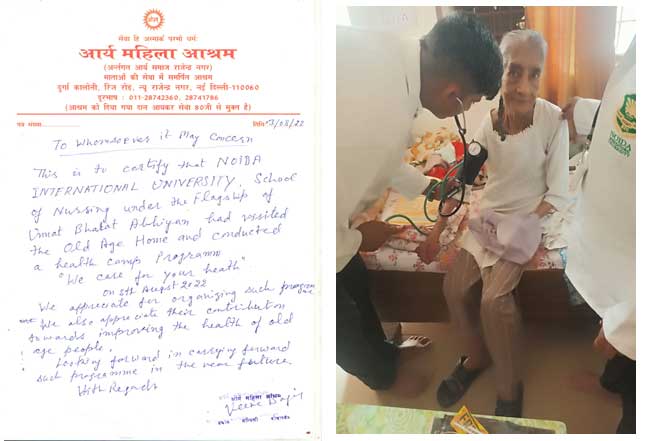 ओ३म्
सेवा हि अस्माकं परमो धर्मः
आर्य महिला आश्रम
(अर्न्तगत आर्य समाज राजेन्द्र नगर)
माताओं की सेवा में समर्पित आश्रम
दुर्गा कालोनी, रिज रोड, न्यू राजेन्द्र नगर, नई दिल्ली-110060
दूरभाष : 011-28742360, 28741786
(आश्रम को दिया गया दान आयकर सेवा 80जी से मुक्त है)
पत्र संख्या
तिथि 3/08/22
To Whomsoever it May Concern
This is to certify that NOIDA
INTERNATIONAL UNIVERSITY, School
of Nursing under the Flagship of
Unnat Bharat Abhiyan had visited
the Old Age Home and conducted
a health camp Programm
"We care for your heath"
on 3th August 2022
We appreciate for organizing such program
We also appreciate their contribution
towards improving the health of old
age people.
Looking forward in carrying forward
such programme in the near future.
With Regards
आर्य महिला आश्रम
NOIDA